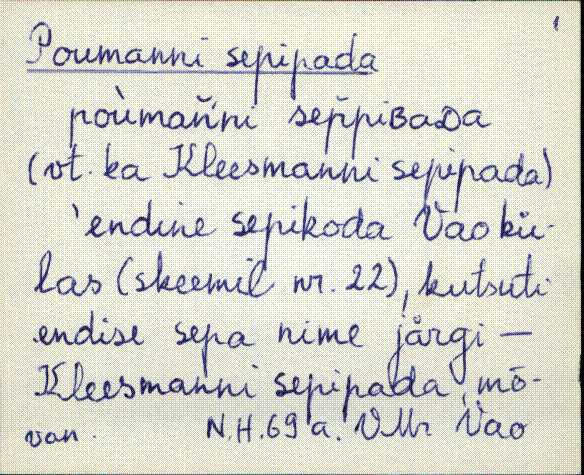 Poumanni sepipada
poùmaňni sep̌piʙaᴅa
(vt. ka Kleesmanni sepipada)
'endine sepikoda Vao kü-
las (skeemil nr. 22), kutsuti
endise sepa nime järgi —
Kleesmanni sepipada, mõ-
van. N.H. 69 a. VMr Vao